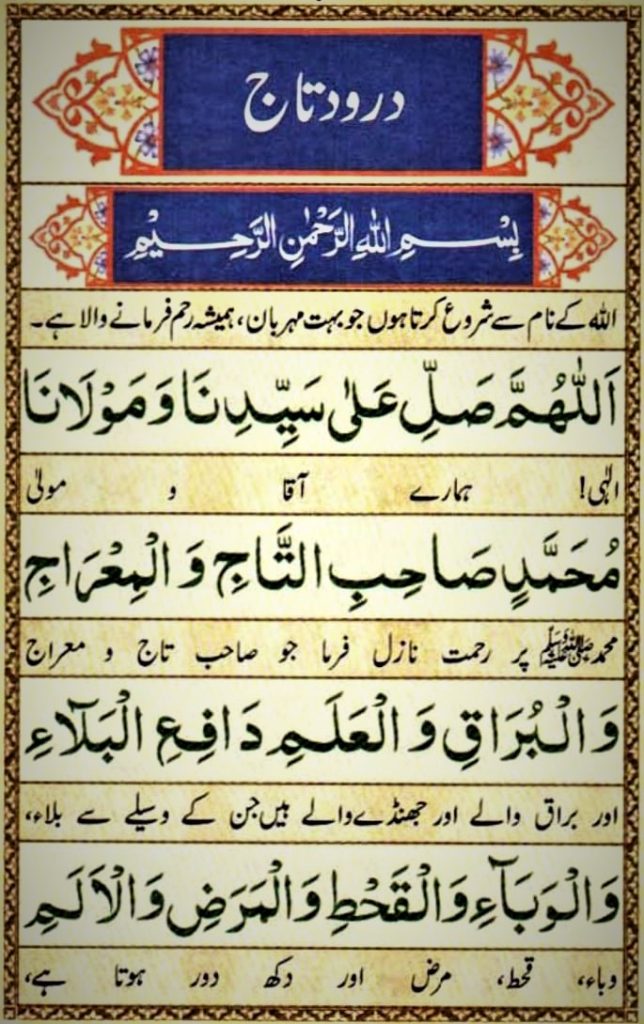 درود تاج
بِسْمِ اللهِ الرَّحْمٰنِ الرَّحِيْمِ
اللہ کے نام سے شروع کرتا ہوں جو بہت مہربان، ہمیشہ رحم فرمانے والا ہے۔
اَللّٰهُمَّ صَلِّ عَلٰى سَيِّدِنَا وَمَوْلَانَا
الٰہی! ہمارے آقا و مولیٰ
مُحَمَّدٍ صَاحِبِ التَّاجِ وَالْمِعْرَاجِ
محمد ﷺ پر رحمت نازل فرما جو صاحب تاج و معراج
وَالْبُرَاقِ وَالْعَلَمِ دَافِعِ الْبَلَآءِ
اور براق والے اور جھنڈے والے ہیں جن کے وسیلے سے بلاء،
وَالْوَبَآءِ وَالْقَحْطِ وَالْمَرَضِ وَالْاَلَمِ
وباء، قحط، مرض اور دکھ دور ہوتا ہے،